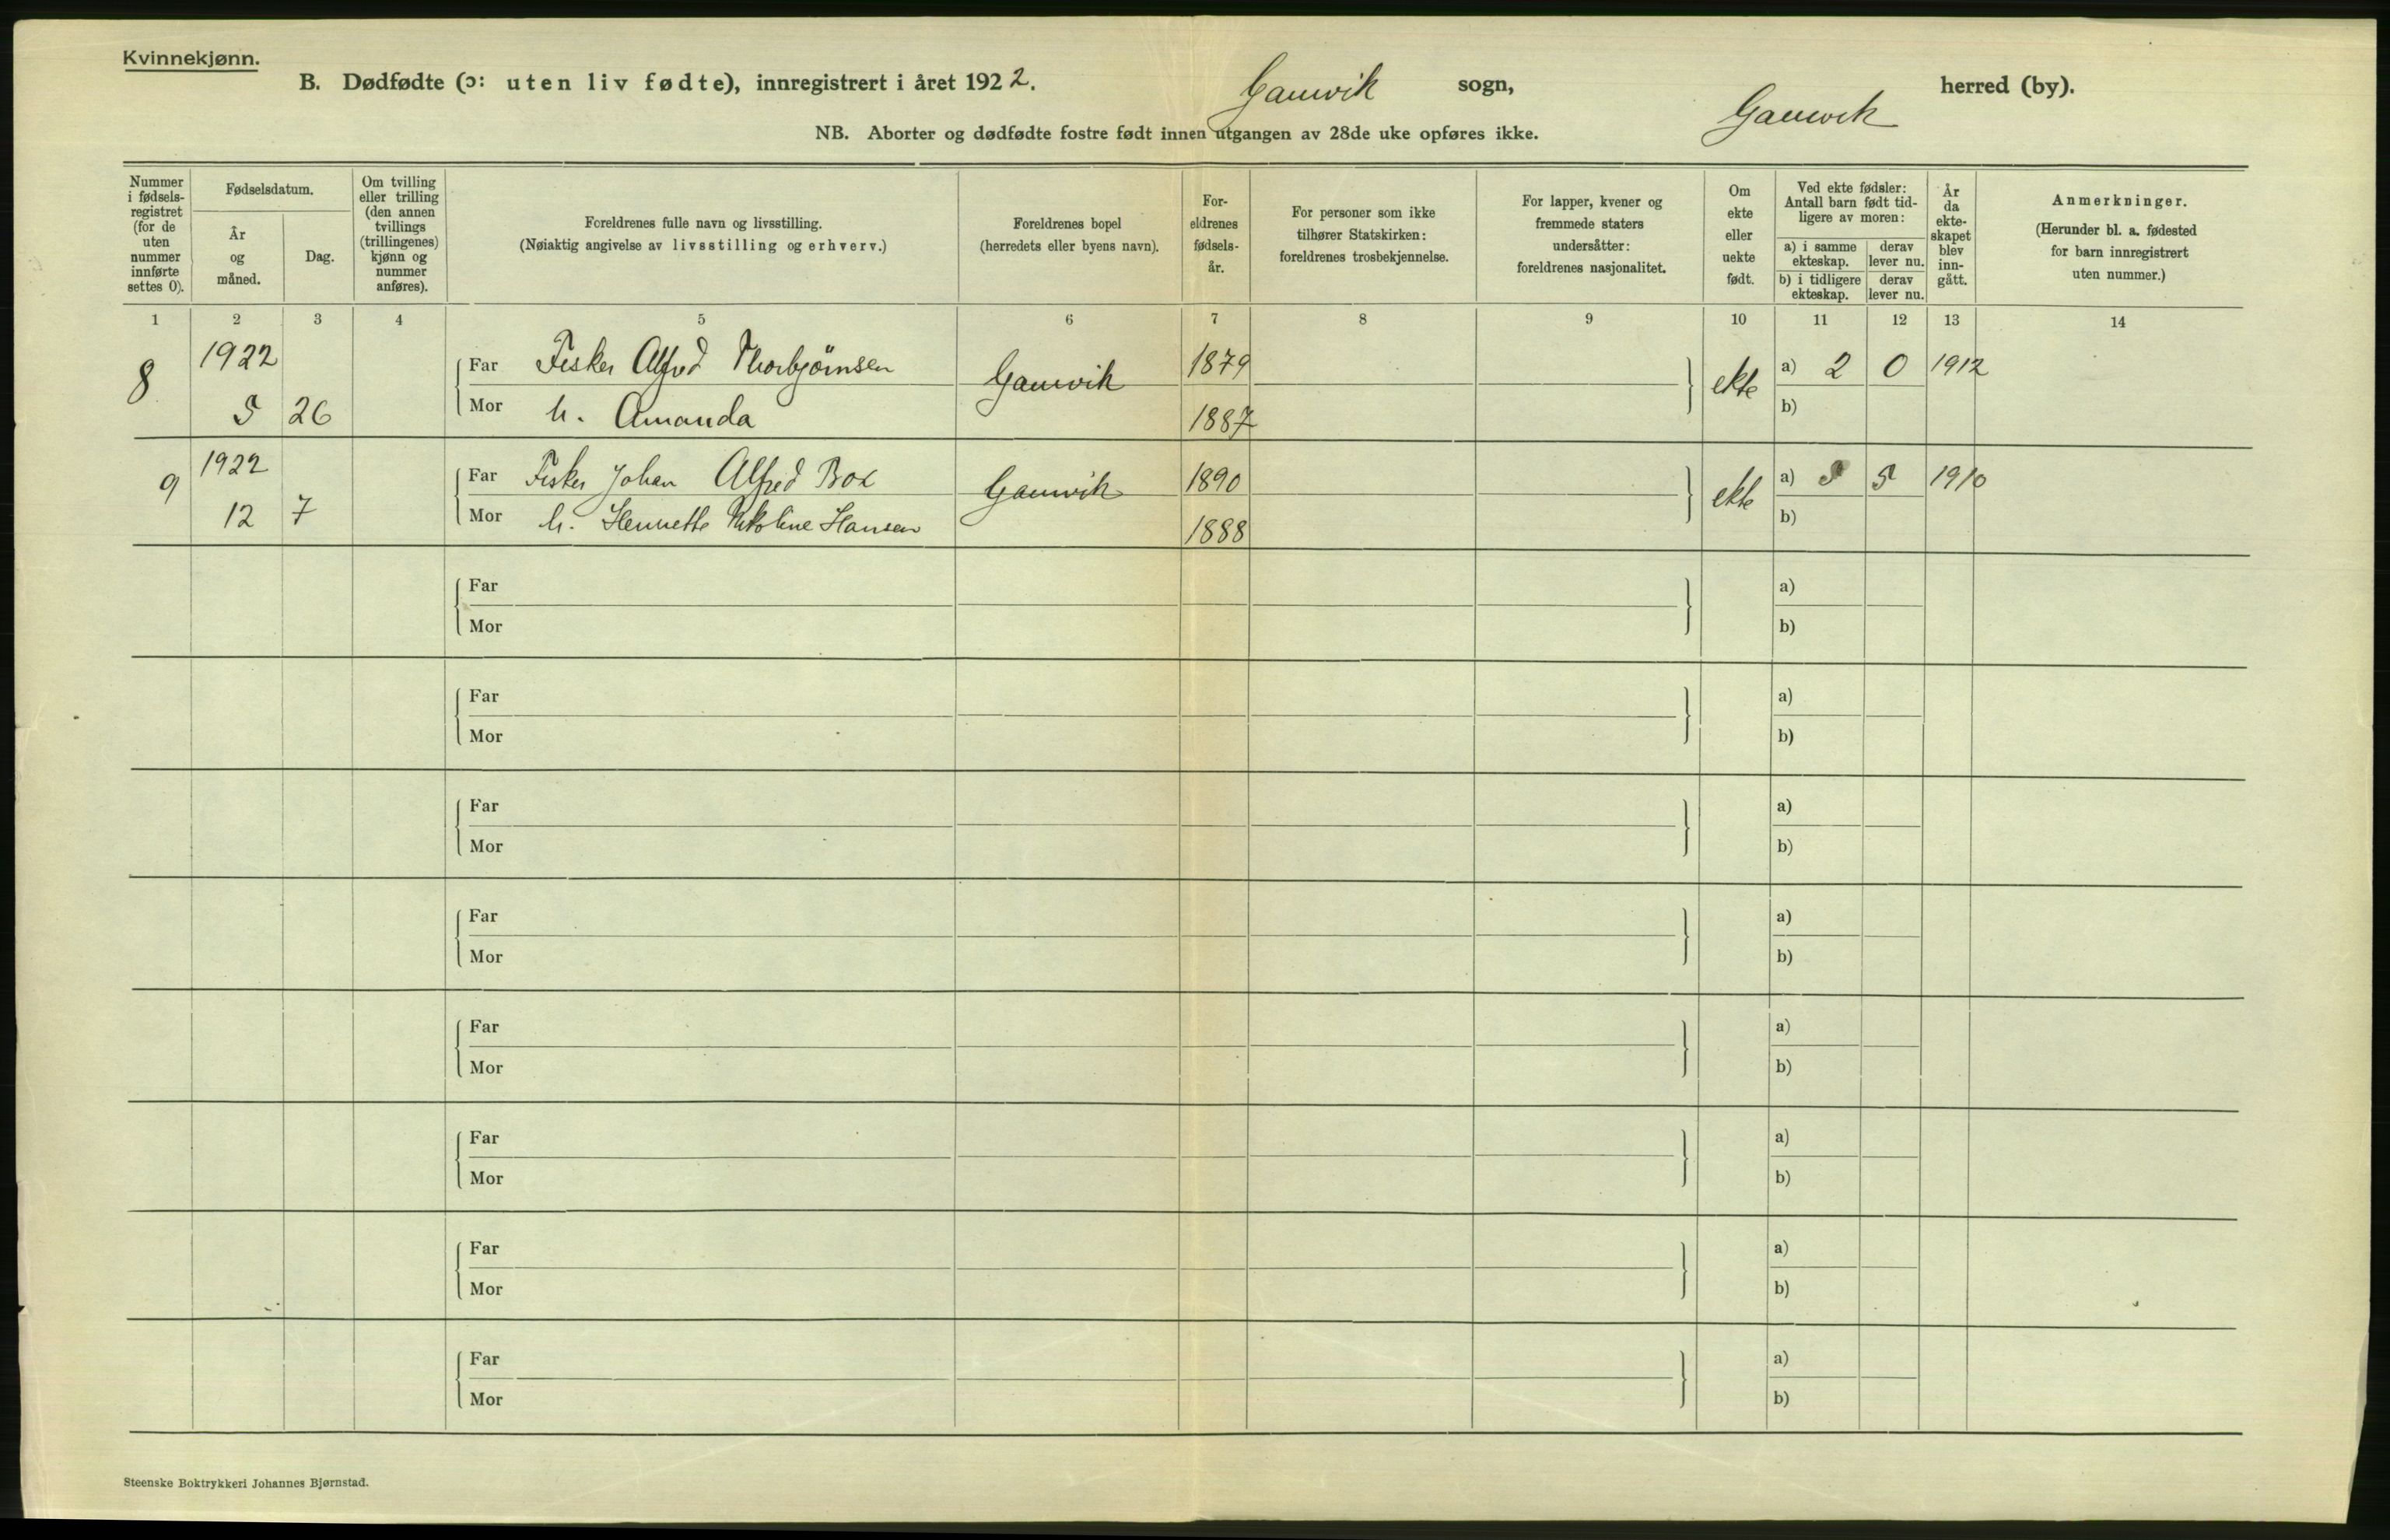 Kvinnekjønn.
B. Dødfødte (ɔ: uten liv fødte), innregistrert i året 1922. Gamvik sogn, Gamvik herred (by).
NB. Aborter og dødfødte fostre født innen utgangen av 28de uke opføres ikke.
Nummer
i fødsels-
registret
(for de
uten
nummer
innførte
settes 0).
Fødselsdatum.
År
og
måned.
Dag.
Om tvilling
eller trilling
(den annen
tvillings
(trillingenes)
kjønn og
nummer
anføres).
Foreldrenes fulle navn og livsstilling.
(Nøiaktig angivelse av livsstilling og erhverv.)
Foreldrenes bopel
(herredets eller byens navn).
For-
eldrenes
fødsels-
år.
For personer som ikke
tilhører Statskirken:
foreldrenes trosbekjennelse.
For lapper, kvener og
fremmede staters
undersåtter:
foreldrenes nasjonalitet.
Om
ekte
eller
uekte
født.
Ved ekte fødsler:
Antall barn født tid-
ligere av moren:
a) i samme
ekteskap.
derav
lever nu.
b) i tidligere
ekteskap.
derav
lever nu.
År
da
ekte-
skapet
blev
inn-
gått.
Anmerkninger.
(Herunder bl. a. fødested
for barn innregistrert
uten nummer.)
1 2 3 4 5 6 7 8 9 10 11 12 13 14
8 1922 Far Fisker Alfred Thorbjörnsen Gamvik 1879 ekte a) 2 0 1912
5 26 Mor h. Amanda 1887 b)
9 1922 Far Fisker Johan Alfred Box Gamvik 1890 ekte a) 5 5 1910
12 7 Mor h. Henriette Nikoline Hansen 1888 b)
Far a)
Mor b)
Far a)
Mor b)
Far a)
Mor b)
Far a)
Mor b)
Far a)
Mor b)
Far a)
Mor b)
Far a)
Mor b)
Far a)
Mor b)
Steenske Boktrykkeri Johannes Bjørnstad.